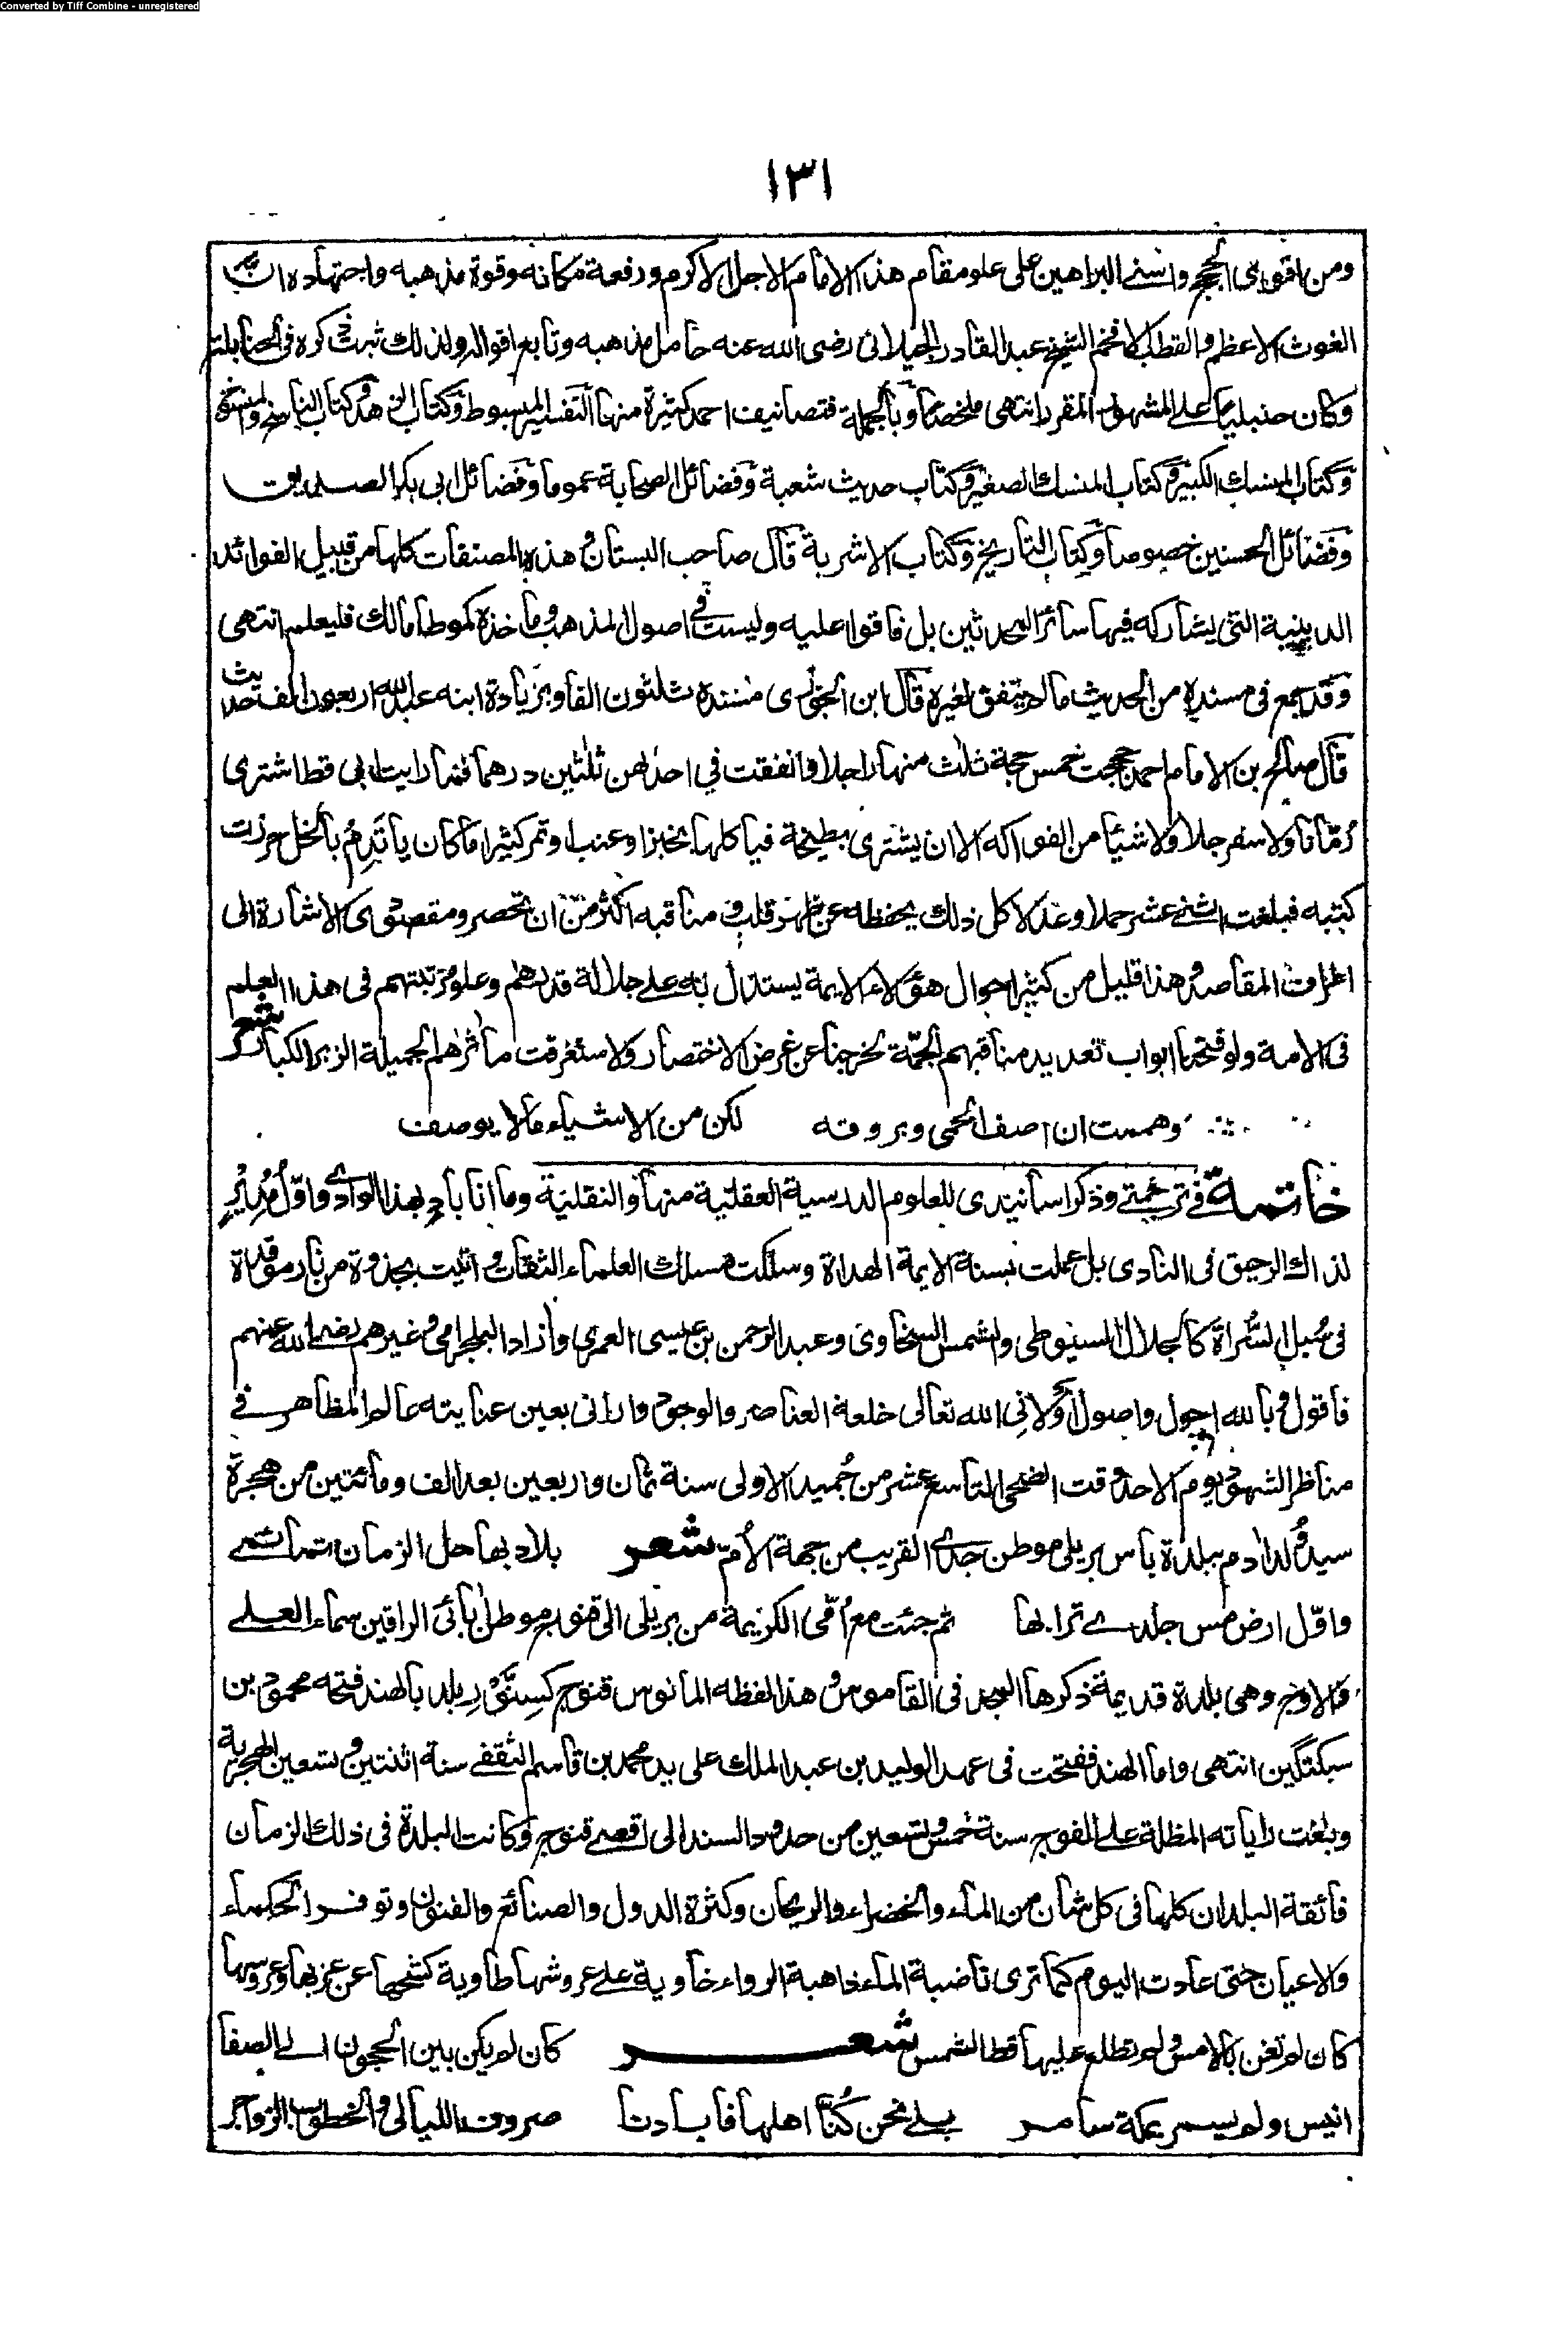 Converted by Tiff Combine - unregistered
١٣١
ومن اقوى الحجج واسنى البراهين على علو مقام هذا الامام الاجل الاكرم ورفعة مكانه وقوة مذهبه واجتهاده ان
الغوث الاعظم والقطب الافخم الشيخ عبد القادر الجيلانى رضى الله عنه حامل مذهبه وتابع اقواله ولذلك ثبت ذكره فى الحنابلة
وكان حنبليا على المشهور المقرر انتهى ملخصا وبالجملة فتصانيف احمد كثيرة منها التفسير المبسوط وكتاب الزهد وكتاب الناسخ والمنسوخ
وكتاب المنسك الكبير وكتاب المنسك الصغير وكتاب حديث شعبة وفضائل الصحابة عموما وفضائل ابى بكر الصديق
وفضائل الحسنين خصوصا وكتاب التاريخ وكتاب الاشربة قال صاحب البستان هذه المصنفات كلها من قبيل الفوائد
الدينية التى يشاركه فيها سائر المحدثين بل فاقوا عليه وليست فى اصول المذهب وماخذه كموطا مالك فليعلم انتهى
وقد جمع فى مسنده من الحديث ما لم يتفق لغيره قال ابن الجوزى مسنده ثلثون الفا وبزيادة ابنه عبد الله اربعون الف حديث
قال صالح بن الامام احمد حججت خمس حجة ثلاث منها راجلا وانفقت فى احدٰهن ثلٰثين درهما فما رايت ابى قط اشترى
رُمّانا ولا سفرجلا ولا شيئا من الفواكه الا ان يشترى بطيخة فيأكلها بخبز او عنب او تمر كثيرا ما كان يأتدم بالخل حزرت
كتبه فبلغت اثنى عشر حملا وعدلا كل ذلك يحفظه عن ظهر قلب ومناقبه اكثر من ان تحصر ومقصودى الاشارة الى
اطراف المقاصد وهذا قليل من كثير احوال هؤلاء الايمة يستدل به على جلالة قدرهم وعلو مرتبتهم فى هذا العلم
فى الامة ولو فتحنا ابواب تعديد مناقبهم الجمّة لخرجنا عن غرض الاختصار ولاستغرقت مآثرهم الجميلة الزبر الكبار شعر
وهممت ان اصف الحمى وبروقه لكن من الاشياء ما لا يوصف
خاتمة فى ترجمتى وذكر اسانيدى للعلوم الدرسية العقلية منها والنقلية وما انا باد بهذا الوادى واوّل مدير
لذاك الرحيق فى النادى بل عملت بسنة الايمة الهداة وسلكت مسلك العلماء الثقات واتيت بجذوة من نار موقدة
فى سُبل السُّراة كالجلال السيوطى والشمس السخاوى وعبد الرحمن بن عيسى العمرى وازاد البلجرامى وغيرهم رضى الله عنهم
فاقول وبالله اجول واصول اولانى الله تعالى خلعة العناصر والوجود وارانى بعين عنايته عالم المظاهر فى
مناظر الشهود يوم الاحد وقت الضحى التاسع عشر من جُميد الاولى سنة ثمان واربعين بعد الف ومائتين من هجرة
سيد وُلد ادم ببلدة بانس بريلى موطن جدى القريب من جهة الأمّ شعر بلاد بها حل الزمان تمائمى
واوّل ارض مس جلدى ترابها ثم جئت مع أمّى الكريمة من بريلى الى قنوج موطن اٰبائى الراقين سماء العلى
والاوج وهى بلدة قديمة ذكرها المجد فى القاموس وهذا لفظه المانوس قنوج كسِنَّوْر بلد بالهند فتحه محمود بن
سبكتگين انتهى واما الهند ففتحت فى عهد الوليد بن عبد الملك على يد محمد بن قاسم الثقفى سنة اثنتين وتسعين الهجرية
وبلغت راياته المظلة على الفوج سنة خمس وتسعين من حدود السند الى اقصى قنوج وكانت البلدة فى ذلك الزمان
فائقة البلدان كلها فى كل شان من الماء والخضراء والريحان وكثرة الدول والصنائع والفنون وتوفر الحكماء
والاعيان حتى عادت اليوم كما ترى ناضبة الماء ذاهبة الرواء خاوية على عروشها طاوية كشحها عن عزبها وعروسها
كان لم تغن بالامس ولم تطلع عليها قط الشمس شعر كان لم يكن بين الحجون الى الصفا
انيس ولم يسمر بمكة سامر بلى نحن كُنَّا اهلها فابادنا صروف الليالى والخطوب الزواجر